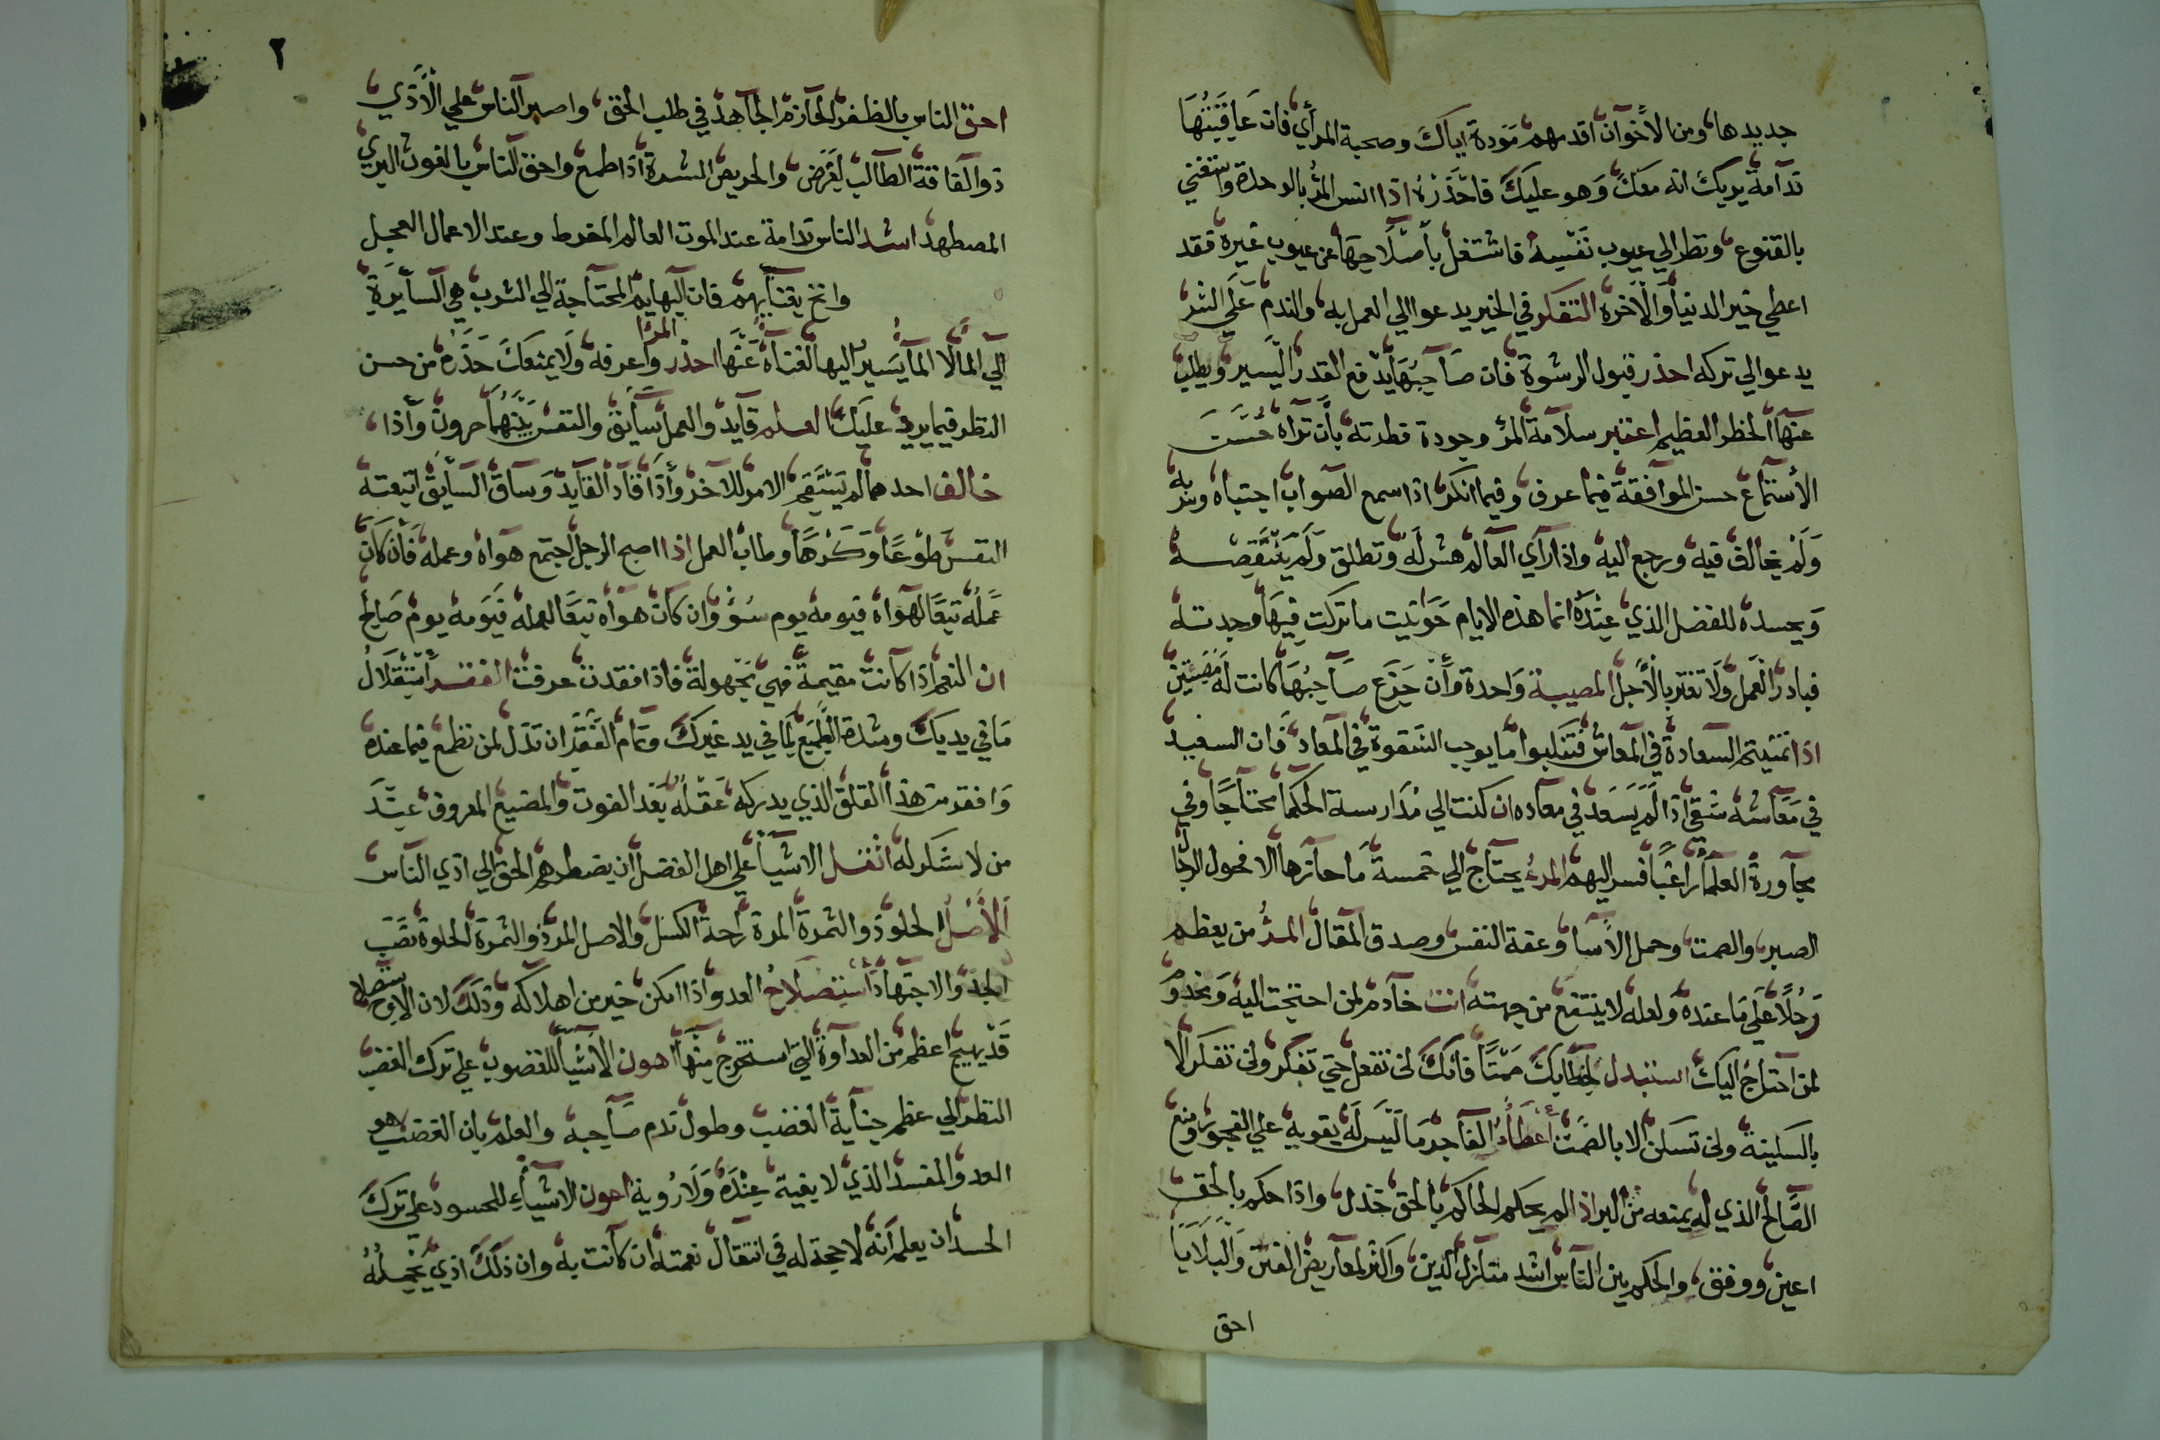 جديدها ومن الأخوان اقدمهم مودة اياك وصحبة المرأي فان عاقبتها
ندامة يريك انه معك وهو عليك فاحذره اذا انس المرؤ بالوحدة واستغني
بالقنوع ونظر الي عيوب نفسه فاشتغل بأصلاحها عن عيوب غيره فقد
اعطي خير الدنيا والآخرة التفكر في الخير يدعوا الي العمل به والندم علي الشر
يدعوا لي تركه احذر قبول الرشوة فان صاحبها يدفع القدر اليسير ويطلب
عنها الخطر العظيم اعتبر سلامة المرؤ وجودة فطرته بأن تراه حسن
الأستماع حسن الموافقة فيما عرف وفيما انكر اذا سمع الصواب اجتباه وسر به
ولم يخالف فيه ورجع اليه واذا رآي العالم هش له وتطلق ولم ينتقصه
ويحسده للفضل الذي عنده انما هذه الايام حوانيت ما تركت فيها وجدته
فبادر العمل ولا تغتر بالأجل المصيبة واحدة وأن جزع صاحبها كانت له مصيبتين
اذا تمنيتم السعادة في المعاش فتغلبوا ما يوجب الشقوة في المعاد فان السعيد
في معاشه شقي اذا لم يسعد في معاده ان كنت الي مدارسة الحكما محتاجا وفي
مجاورة العلما راغبا فسر اليهم المرء يحتاج الي خمسة ما حازها الا فحول الرجال
الصبر والصمت وحمل الأسا وعفة النفس وصدق المقال المرؤ من يعظم
رجلا علي ما عنده ولعله لا ينتفع من جهته انت خادم لمن احتجت اليه ومخدوم
لمن احتاج اليك استبدل بخطابك صمتا فانك لن تفعل حتي تفكر ولن تفكر الا
بالسكينة ولن تسكن الا بالصمت أعطاء الفاجر ما ليس له يقويه علي الفجور ومنع
الصالح الذي له يمنعه من البر اذا لم يحكم الحاكم بالحق خذل واذا حكم بالحق
اعين ووفق والحكم بين الناس اشد منازل الدين واكثر لمعاريض الفتن والبلايا
احق
٢
احق الناس بالظفر الحازم المجاهد في طلب الحق واصبر الناس علي الأذي
ذو الفاقة الطالب لغرض والحريص الشره اذا طمع واحق الناس بالغوث البري
المضطهد اشد الناس ندامة عند الموت العالم المفرط وعند الاعمال العجل
فان البهايم المحتاجة الي الشرب هي السايرة
الي الما لا الما يسير اليها لغناه عنها احذر المرا واعرفه ولا يمنعك حذره من حسن
النظر فيما يرد عليك العلم قايد والعمل سايق والنفس بينهما حرون وأذا
خالف احدهما لم يستقم الامر للآخر وأذا قاد القايد وساق السايق اتبعته
النفس طوعا وكرها وطاب العمل اذا اصبح الرجل اجتمع هواه وعمله فأن كان
عمله تبعا لهواه فيومه يوم سؤ وان كان هواه تبعا لعمله فيومه يوم صالح
ان النعم اذا كانت مقيمة فهي مجهولة فاذا فقدت عرفت الفقر أستقلال
ما في يديك وشدة الطمع لما في يد غيرك وتمام الفقر ان تذل لمن تطمع فيما عنده
وافقد من هذا القلق الذي يدركه عقله بعد الفوت والمضيع المعروف عند
من لا شكر له اثقل الاشيا علي اهل الفضل أن يضطرهم الحق الي اذي الناس
الأصل الحلو ذو الثمرة المرة راحة الكسل والاصل المر ذو الثمرة الحلوة نصب
الجد والاجتهاد أستصلاح العدو اذا امكن خير من اهلاكه وذلك لان
قد يهيج اعظم من العداوة التي استخرج منها اهون الأشيا للغضوب علي ترك الغضب
النظر الي عظم جناية الغضب وطول ندم صاحبه والعلم بان الغضب هو
العدو المفسد الذي لا بقية عنده ولا روية اهون الاشياء للمحسود علي ترك
الحسد ان يعلم أنه لا حجة له في انتقال نعمته ان كانت به وان ذلك اذي